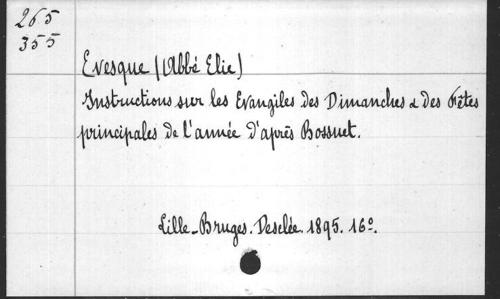 265
355
Evesque (Abbé Elie)
Instructions sur les Evangiles des Dimanches & des Fêtes
principales de l'année d'après Bossuet.
Lille-Bruges. Desclée. 1895. 16º.